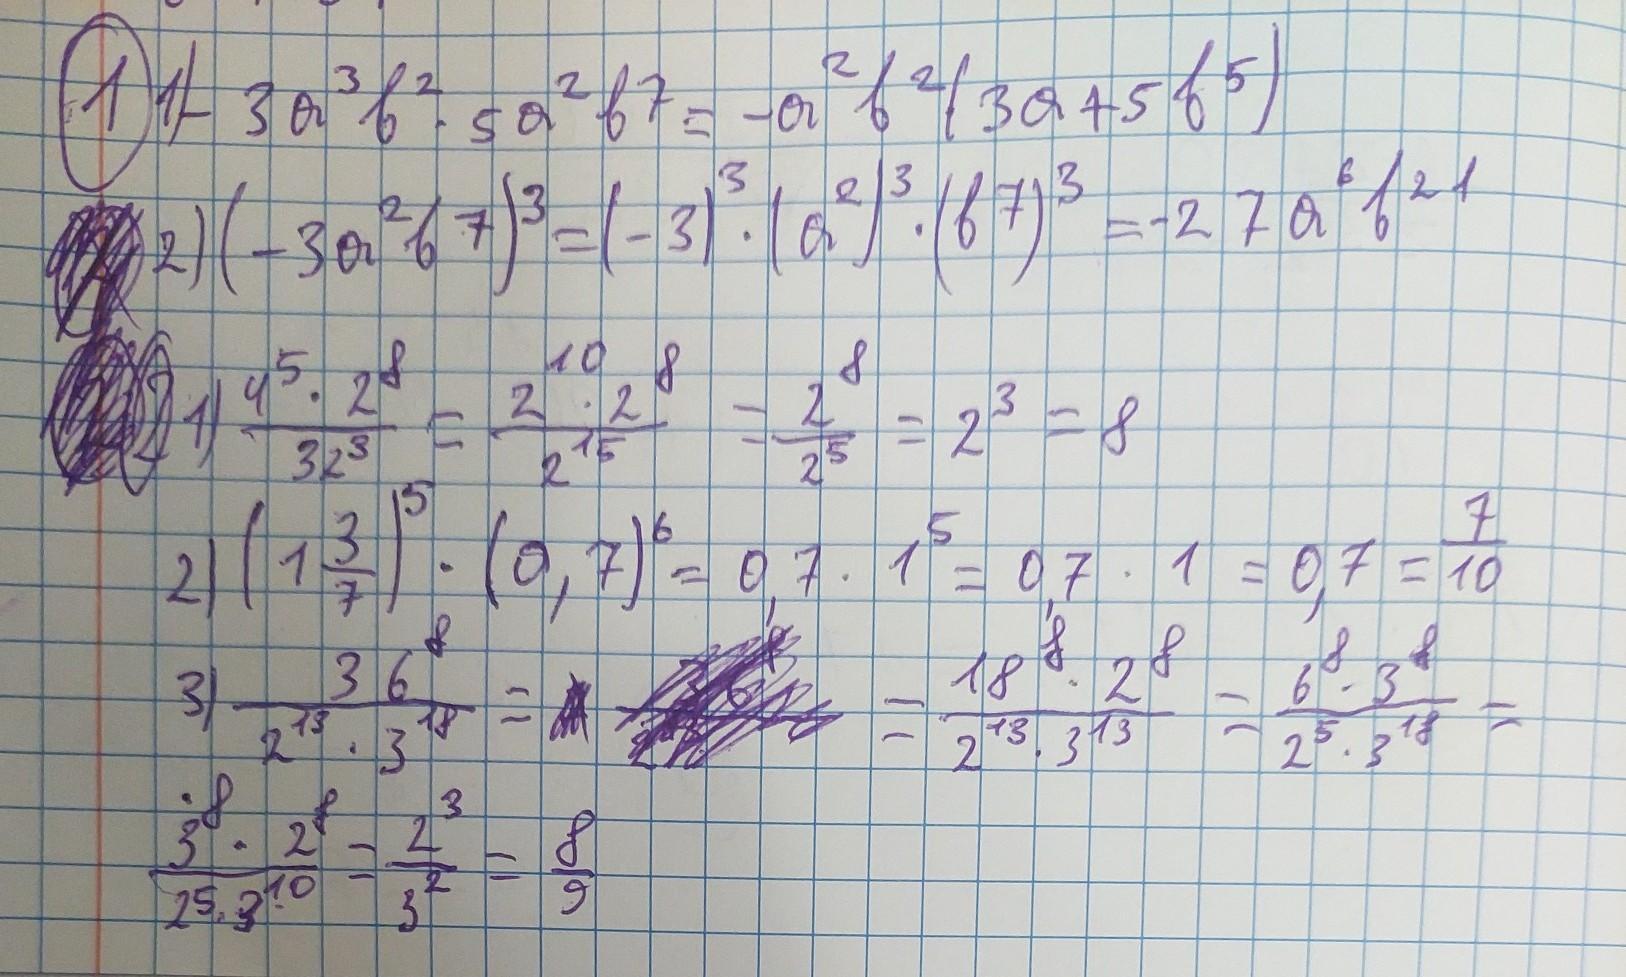 1 1) - 3a³b² · 5a²b⁷ = -a²b²(3a+5b⁵)
2) (-3a²b⁷)³ = (-3)³ · (a²)³ · (b⁷)³ = -27a⁶b²¹
2 1) 4⁵ · 2⁸ / 32³ = 2¹⁰ · 2⁸ / 2¹⁵ = 2⁸ / 2⁵ = 2³ = 8
2) (1 3/7)⁵ · (0,7)⁶ = 0,7 · 1⁵ = 0,7 · 1 = 0,7 = 7/10
3) 36⁸ / 2¹³ · 3¹⁸ = = 18⁸ · 2⁸ / 2¹³ · 3¹³ = 6⁸ · 3⁸ / 2⁵ · 3¹⁸ =
3⁸ · 2⁸ / 2⁵ · 3¹⁰ = 2³ / 3² = 8/9